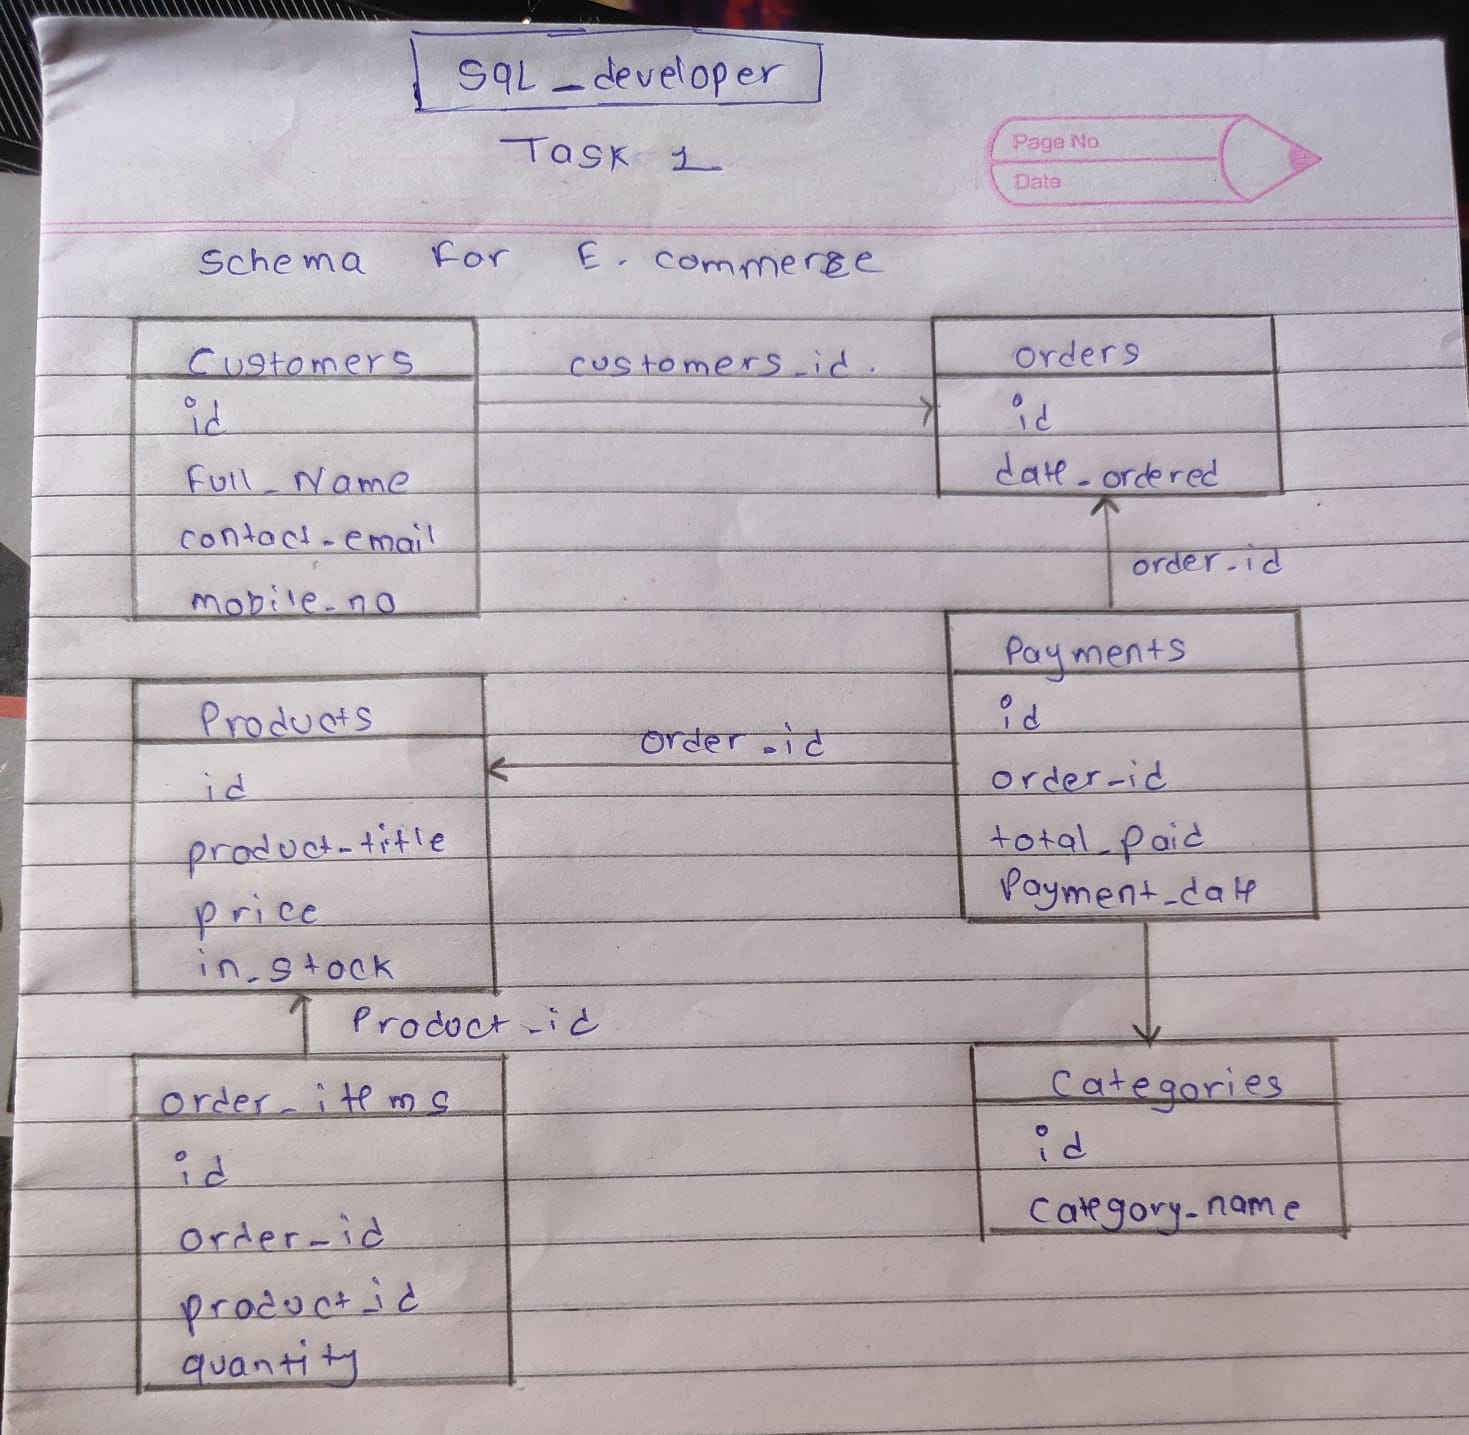 SQL_developer
Task 1
Page No
Date
Schema For E. commerce
Customers
id
Full_Name
contact-email
mobile-no
customers_id.
orders
id
date-ordered
order-id
Payments
id
order-id
total_paid
Payment-date
Products
id
product-title
price
in-stock
order-id
Product-id
order-items
id
order-id
product-id
quantity
Categories
id
category-name